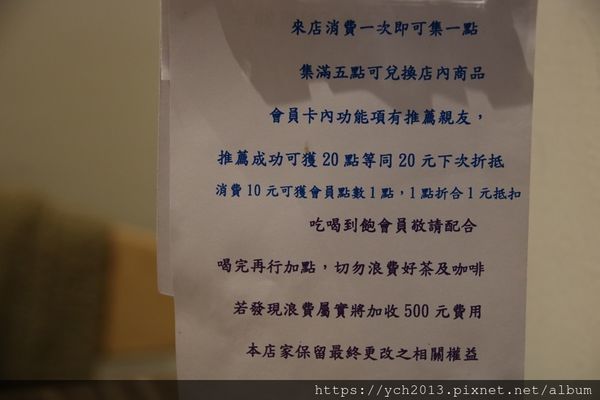 來店消費一次即可集一點
集滿五點可兌換店內商品
會員卡內功能項有推薦親友，
推薦成功可獲 20 點等同 20 元下次折抵
消費 10 元可獲會員點數 1 點，1 點折合 1 元抵扣
吃喝到飽會員敬請配合
喝完再行加點，切勿浪費好茶及咖啡
若發現浪費屬實將加收 500 元費用
本店家保留最終更改之相關權益
https://ych2013.pixnet.net/album